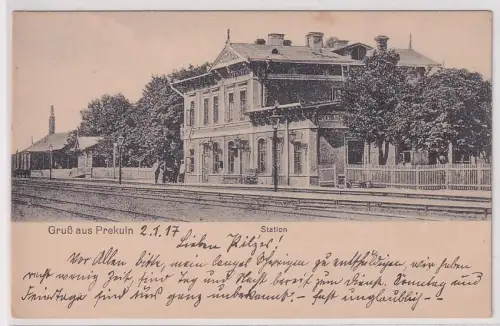 Gruß aus Prekuln 2.1.17
Station
Lieben Pilzes!
Vor Allen bitte, mein langes Schweigen zu entschuldigen, wir haben
recht wenig Zeit, sind Tag und Nacht bereit zum Dienst. Sonntag und
Feiertage sind uns ganz unbekannt. - fast unglaublich -